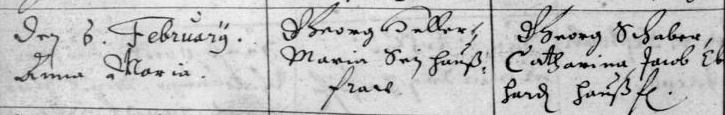 Den 6. February.
Anna Maria.
Georg Heller,
Maria Sein hauß-
fraw.
Georg Schaber,
Catharina, Jacob Eb
hardj haußf.